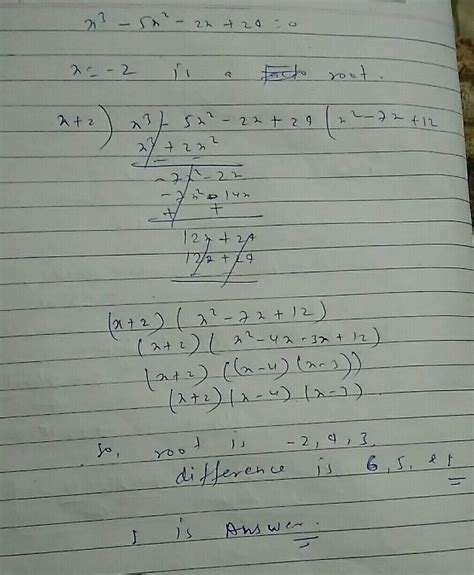 x³ - 5x² - 2x + 24 = 0
x = -2 is a root.
x+2) x³ - 5x² - 2x + 24 (x² - 7x + 12
x³ + 2x²
- -
-7x² - 2x
-7x² - 14x
+ +
12x + 24
12x + 24
(x+2) (x² - 7x + 12)
(x+2) (x² - 4x - 3x + 12)
(x+2) ((x-4) (x-3))
(x+2) (x-4) (x-3)
So, root is -2, 4, 3.
difference is 6, 5, &1
1 is Answer.